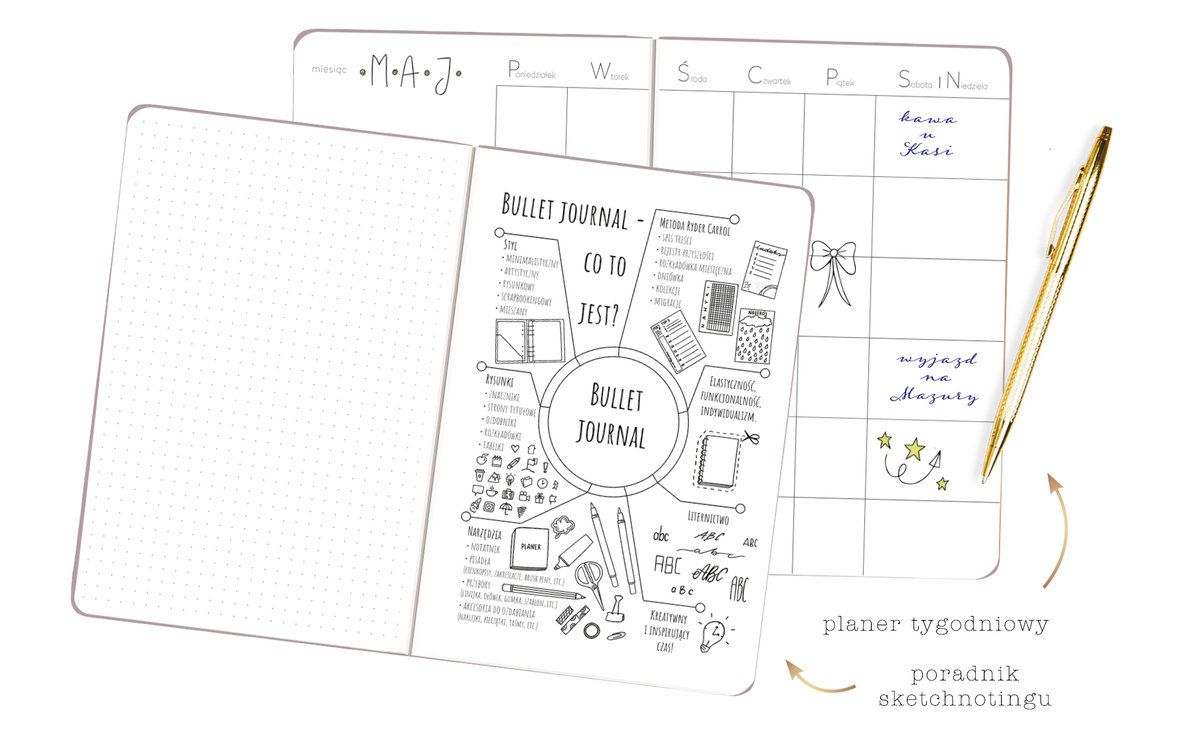 miesiąc
M·A·J·
Poniedziałek Wtorek Środa Czwartek Piątek Sobota i Niedziela
kawa
u
Kasi
wyjazd
na
Mazury
BULLET JOURNAL -
CO TO
JEST?
STYL
• MINIMALISTYCZNY
• ARTYSTYCZNY
• RYSUNKOWY
• SCRAPBOOKINGOWY
• MIESZANY
METODA RYDER CARROL
• SPIS TREŚCI
• REJESTR PRZYSZŁOŚCI
• ROZKŁADÓWKA MIESIĘCZNA
• DNIÓWKA
• KOLEKCJE
• MIGRACJE
indeks
NAWYKI
NASTRÓJ
RYSUNKI
• ZNACZNIKI
• STRONY TYTUŁOWE
• OZDOBNIKI
• ROZKŁADÓWKI
• TABELKI
BULLET
JOURNAL
ELASTYCZNOŚĆ,
FUNKCJONALNOŚĆ,
INDYWIDUALIZM.
LITERNICTWO
abc ABC ABC
abc
ABC ABC ABC
aBc
NARZĘDZIA
• NOTATNIK
• PISADŁA
(CIENKOPISY, ZAKREŚLACZE, BRUSH PENY, ETC.)
• PRZYBORY
(LINIJKA, OŁÓWEK, GUMKA, SZABLON, ETC.)
• AKCESORIA DO OZDABIANIA
(NAKLEJKI, PIECZĄTKI, TAŚMY, ETC.)
PLANER
KREATYWNY
I INSPIRUJĄCY
CZAS!
planer tygodniowy
poradnik
sketchnotingu